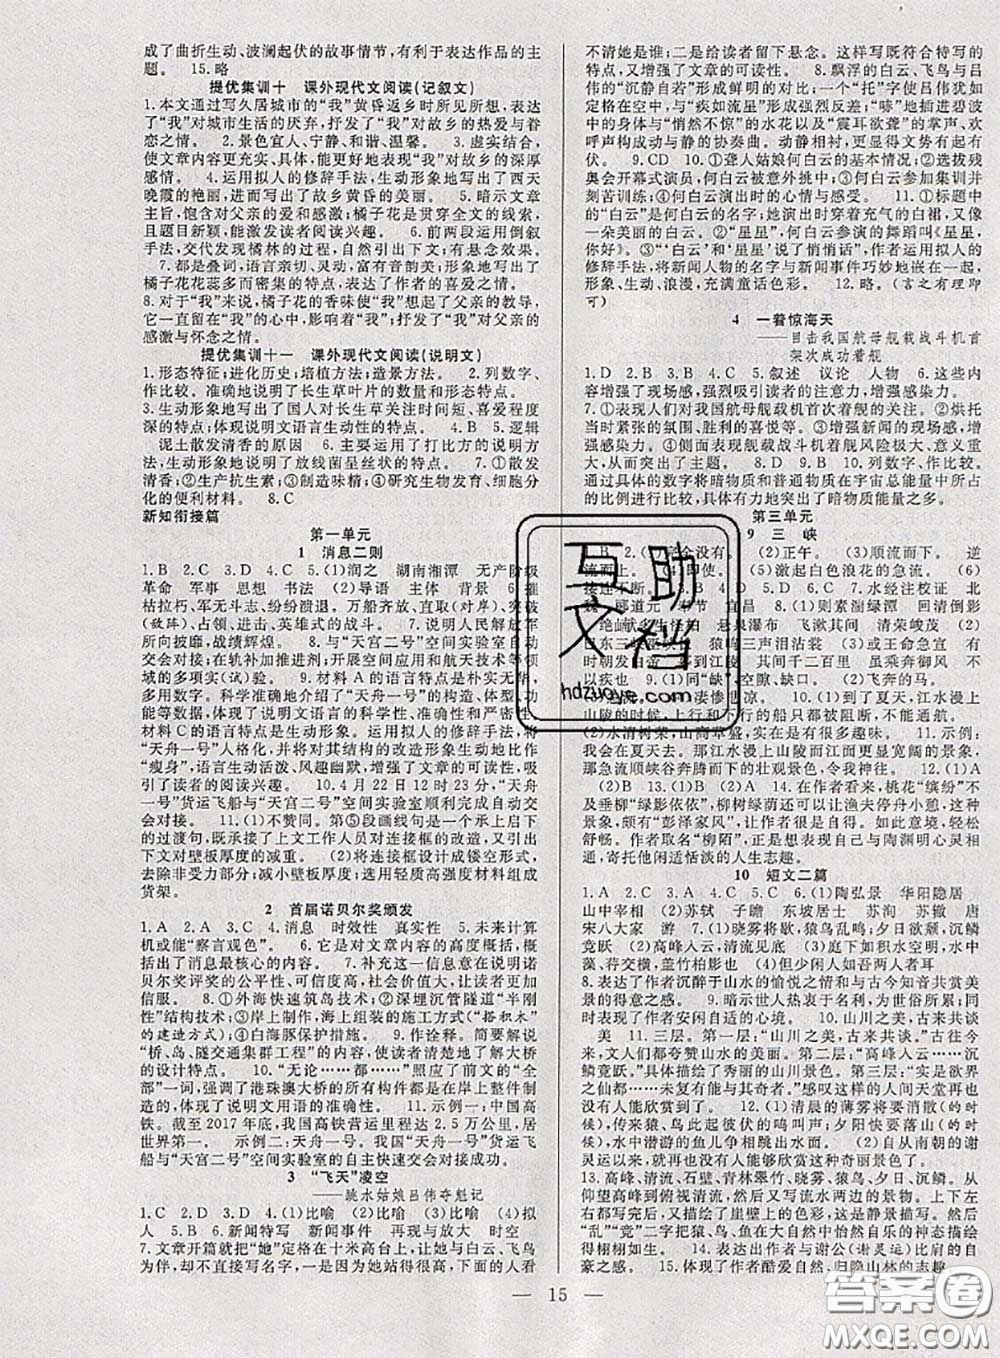 成了曲折生动、波澜起伏的故事情节,有利于表达作品的主
题。 15.略
提优集训十 课外现代文阅读(记叙文)
1.本文通过写久居城市的“我”黄昏返乡时所见所想,表达
了“我”对城市生活的厌弃,抒发了“我”对故乡的热爱与眷
恋之情。 2.景色宜人、宁静、和谐、温馨。 3.虚实结合,
使文章内容更充实、具体,能更好地表现“我”对故乡的深厚
感情。 4.运用拟人的修辞手法,生动形象地写出了西天
晚霞的艳丽,进而写出了故乡黄昏的美丽。 5.暗示文章
主旨,饱含对父亲的爱和感激;橘子花是贯穿全文的线索,
且题目新颖,能激发读者阅读兴趣。 6.前两段运用倒叙
手法,交代发现橘林的过程,自然引出下文;有悬念效果。
7.都是叠词,语言亲切、灵动,富有音韵美;形象地写出了
橘子花花蕊多而密集的特点,表达了作者的喜爱之情。
8.对于“我”来说,橘子花的香味使“我”想起了父亲的教导,
它一直留在“我”的心里,影响着“我”;抒发了“我”对父亲的
感激与怀念之情。
提优集训十一 课外现代文阅读(说明文)
1.形态特征;进化历史;培植方法;造景方法。 2.列数字、
作比较。准确地说明了长生草叶片的数量和形态特点。
3.生动形象地写出了国人对长生草关注时间短、喜爱程度
深的特点;体现说明文语言生动性的特点。 4.B 5.逻辑
泥土散发清香的原因 6.主要运用了打比方的说明方
法,生动形象地说明了放线菌呈丝状的特点。 7.①散发
清香;②生产抗生素;③制造味精;④研究生物发育、细胞分
化的便利材料。 8.C
新知衔接篇
第一单元
1 消息二则
1.B 2.C 3.D 4.C 5.(1)润之 湖南湘潭 无产阶级
革命 军事 思想 书法 (2)导语 主体 背景 6.摧
枯拉朽、军无斗志、纷纷溃退。万船齐放、直取对岸、突破
(敌阵)、占领、进击、英雄式的战斗。 7.说明人民解放军
所向披靡,战绩辉煌。 8.与“天宫二号”空间实验室自动
交会对接;在轨补加推进剂;开展空间应用和航天技术等领
域的多项(实)试验。 9.材料A的语言特点是朴实无华,
材料内容具有科学性。科学准确地介绍了“天舟一号”的构造、体型、功
能等数据,体现了说明文语言的科学性、准确性和严密性。
材料C的语言特点是生动形象。运用拟人的修辞手法,将
“天舟一号”人格化,并将其结构的改造形象生动地比作
“瘦身”,语言生动活泼、风趣幽默,增强了文章的可读性,吸
引了读者的阅读兴趣。 10.4月22日12时23分,“天舟
一号”货运飞船与“天宫二号”空间实验室顺利完成自动交会
对接。 11.(1)不赞同。第⑤段画线句是一个承上启下
的过渡句,既承接了上文工作人员对连接框的改造,又引出
下文对壁板厚度的减重。 (2)将连接框设计成镂空形式,
去除非受力结构;减小壁板厚度;选用轻质高强度材料组成
货架。
2 首届诺贝尔奖颁发
1.A 2.A 3.C 4.消息 时效性 真实性 5.未来计算
机或能“察言观色”。 6.它是对文章内容的高度概括,概括
出了消息最核心的内容。 7.补充这一信息意在说明诺贝
尔奖评奖的公平性、可信度高,价值大,让读者更加
信服。 8.①外海快速筑岛技术;②深埋沉管隧道“半刚
性”结构;③岸上制作,海上组装的施工方式(“搭积木”
的建造方式);④白海豚保护措施。 9.作诠释。简要解说
“桥、岛、隧交通集群工程”的内容,使读者清楚地了解大桥
的设计特点。 10.“无论……都……”照应了前文的“全
部”一词,强调了港珠澳大桥的所有构件都是在岸上整件制
造的,体现了说明文用语的准确性。 11.示例一:中国高
铁。截至2017年底,我国高铁营运里程达2.5万公里,居
世界第一。 示例二:天舟一号。我国“天舟一号”货运飞
船与“天宫二号”空间实验室的自主快速交会对接成功。
3 “飞天”凌空
——跳水姑娘吕伟夺魁记
1.C 2.D 3.C 4.(1)比喻 (2)比喻 (3)比喻 (4)拟
人 5.B 6.新闻特写 新闻事件 再现与放大 时空
7.文章开篇就把“她”定格在十米高台上,让她与白云、飞鸟
为伴,却不直接写名字,一是因为她站得很高,下面的人看
不清她是谁;二是给读者留下悬念。这样写符合特写的
特点,又增强了文章的可读性。 8.飘浮的白云、飞鸟与吕
伟的“沉静自若”形成鲜明的对比。一个“托”字使吕伟犹如
定格在空中,与“疾如流星”形成强烈反差。“哧”地插进碧波
中的身体与“悄然不惊”的水花以及“震耳欲聋”的掌声、欢
呼声构成动与静的协奏曲。动静相衬,更显得文势有起有
伏。 9.CD 10.①聋人姑娘何白云的基本情况;②选拔残
奥会开幕式演员,何白云被意外挑中;③何白云参加集训并
刻苦训练;④何白云演出时的心情与感受。 11.①标题中
的“白云”是何白云的名字;她演出时穿着充气的白裙,又像
一朵美丽的白云。②“星星”,何白云表演的舞蹈叫《星星,
你好》。③“‘白云’和‘星星’说了悄悄话”,作者运用拟人的
修辞手法,将新闻人物的名字与新闻事件巧妙地嵌在一起,
形象、生动、浪漫,充满童话色彩。 12.略。(言之有理即
可)
4 一着惊海天
——目击我国航母舰载战斗机首
架次成功着舰
1.D 2.B 3.A 4.C 5.叙述 议论 人物 6.这些内
容增强了现场感,强烈吸引读者的注意力,增强感染力。
7.①表现人们对我国航母舰载机首次着舰的关注。②烘托
紧张的氛围、胜利的喜悦等。③增强新闻的现场感,
增强感染力。④侧面表现舰载战斗机着舰风险极大、意义重
大,突出了主题。 8.D 9.B 10.列数字、作比较。
通过具体的数字将暗物质和普通物质在宇宙总能量中所占
的比例进行比较,具体有力地突出了暗物质能量之多。
第三单元
9 三峡
1.B 2.(1)完全没有。 (2)正午。 (3)顺流而下。 逆
流而上。 (4)即使。 (5)激起白色浪花的急流。 (6)
接连不断。
郦道元 奉节 宜昌 (1)则素湍绿潭 回清倒影
绝𪩘多生怪柏 悬泉瀑布 飞漱其间 清荣峻茂
(2)巴东三峡巫峡长 猿鸣三声泪沾裳 或王命急宣 有
时朝发白帝 暮到江陵 其间千二百里 虽乘奔御风 不
以疾也 6.(1)同“缺”,空隙、缺口。 (2)飞奔的马。
凄惨悲凉。 (1)到了夏天,江水漫上
山陵的时候,上行和下行的船只都被阻断,不能通行了。
(2)水清树荣,山高草盛,实在是有很多趣味。 11.示例:
我会在夏天去。那江水漫上山陵而江面更显宽阔的景象,
那急流顺峡谷奔腾而下的壮观景色,令我神往。 12.(1)A
(2)B 13.(1)A (2)B 14.在作者看来,桃花“缤纷”不
及垂柳“绿影依依”,柳树绿荫还可以让渔夫停舟小憩,更为
舒适,颇有“彭泽家风”,让作者很是喜欢。如此意境,轻松
舒畅。作者取名“柳陌”,正是想表达与陶渊明心灵契合、
寄托他闲适恬淡的人生志趣。
10 短文二篇
1.A 2.C 3.D 4.C 5.C 6.(1)陶弘景 华阳隐居
山中宰相 (2)苏轼 子瞻 东坡居士 苏洵 苏辙 唐
宋八大家 游 7.(1)晓雾将歇,猿鸟乱鸣;夕日欲颓,沉鳞
竞跃 (2)高峰入云,清流见底 (3)庭下如积水空明,水中
藻、荇交横,盖竹柏影也 (4)但少闲人如吾两人者耳
8.表达了作者沉醉于山水的愉悦之情和与古今知音共赏美
景的得意之感。 9.暗示世人热衷于名利,与世俗所累;
同时表现了作者安闲自适的心境。 10.山川之美,古来共谈。
美 11.三层。第一层:“山川之美,古来共谈。”古往今
来,文人们都会赞叹山水的美丽。第二层:“高峰入云……沉
鳞竞跃。”具体描写了秀丽的山川景色。第三层:“实是欲界之
仙都……未复有能与其奇者。”感叹这样的人间天堂再没有
人能欣赏到了。 12.(1)清晨的薄雾将要消散(的时
候),传来猿、鸟此起彼伏的鸣叫声;夕阳快要落山(的时候),
水中潜游的鱼儿争相跳出水面。 (2)自从南朝的谢
灵运以来,就再也没有人能够欣赏这种奇丽景色了。
13.高峰、清流、石壁、青林翠竹、晓雾、猿鸟、夕日、沉鳞。从
仰望高峰到俯视清流,又描写了多种色彩的景物。然后从
早晚方面,又描绘了生灵的活动。前者是静景描写,然后
“乱”“竞”二字把猿、鸟、鱼在大自然中的动态美生动形象地
描绘得栩栩如生。 14.表达出作者与谢公(谢灵运)比肩的自
豪之感。 15.体现了作者酷爱自然、归隐山林的志趣。
— 15 —
互助文档
hdzuoye.com
答案圈
MXQE.COM